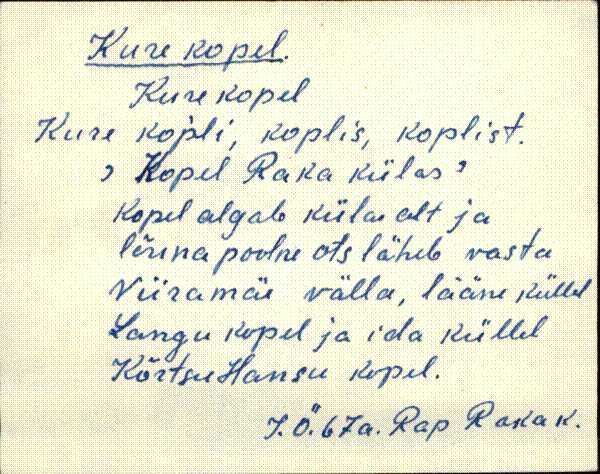 Kure kopel.
Kure kopel
Kure kopli, koplis, koplist.
, Kopel Raka külas ’
kopel algab küla alt ja
lõuna poolne ots läheb vasta
Viiramäe välla, lääne küllel
Langu kopel ja ida küllel
Kõrtsu Hansu kopel.
J.Ö. 67a. Rap Raka k.